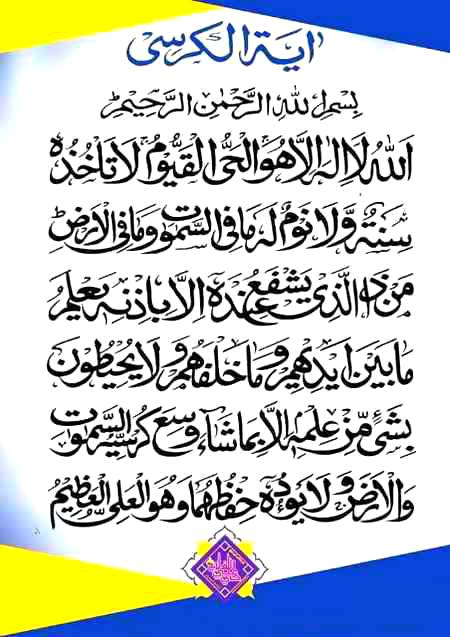 اٰیة الکرسی
بِسْمِ اللهِ الرَّحْمٰنِ الرَّحِیْمِ
اَللهُ لَا اِلٰهَ اِلَّا هُوَ الْحَیُّ الْقَیُّوْمُ لَا تَاْخُذُهٗ
سِنَةٌ وَّلَا نَوْمٌ لَهٗ مَا فِی السَّمٰوٰتِ وَمَا فِی الْاَرْضِ
مَنْ ذَا الَّذِیْ یَشْفَعُ عِنْدَهٗ اِلَّا بِاِذْنِهٖ یَعْلَمُ
مَا بَیْنَ اَیْدِیْهِمْ وَمَا خَلْفَهُمْ وَلَا یُحِیْطُوْنَ
بِشَیْءٍ مِّنْ عِلْمِهٖ اِلَّا بِمَا شَآءَ وَسِعَ کُرْسِیُّهُ السَّمٰوٰتِ
وَالْاَرْضَ وَلَا یَئُوْدُهٗ حِفْظُهُمَا وَهُوَ الْعَلِیُّ الْعَظِیْمُ